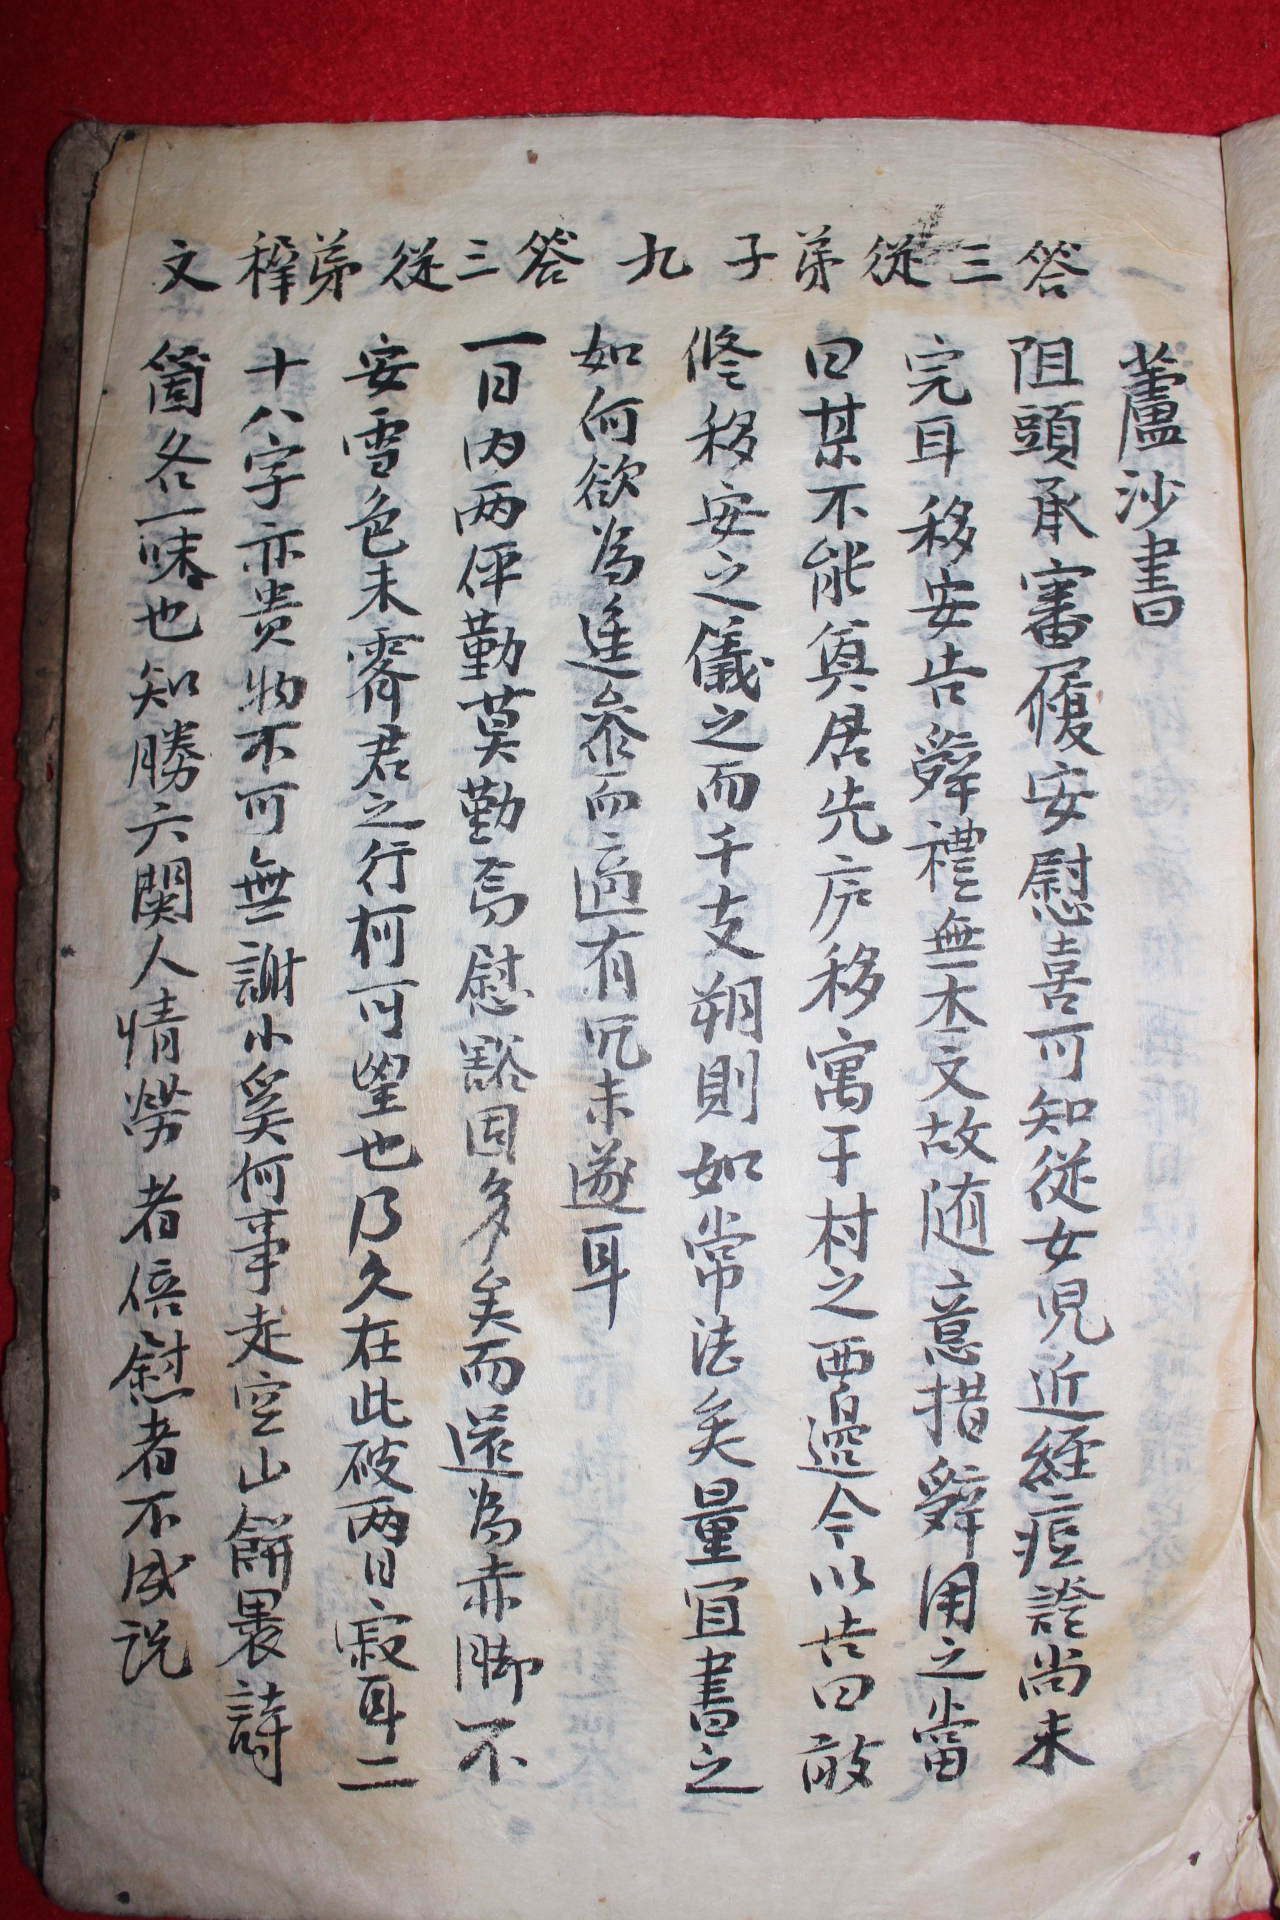 蘆沙書
答三從弟子九
阻頭承審履安慰喜可知從女児近經痘證尚未
完耳移安告辤禮無本文故随意措辤用之當
曰某不能奠居先庐移寓于村之西邊今以吉日敢
修移安之儀之而干支朔則如常法矣量宜書之
如何欲為進叅而適有冗未遂耳
答三從弟稺文
一日内两伻勤莫勤焉慰豁固多矣而還為赤脚不
安雪色未霽君之行柯可望也乃久在此破两日寂耳二
十八字亦貴物不可無謝小奚何事走空山餠裹詩
箇各一味也知勝六関人情勞者倍慰者不成説